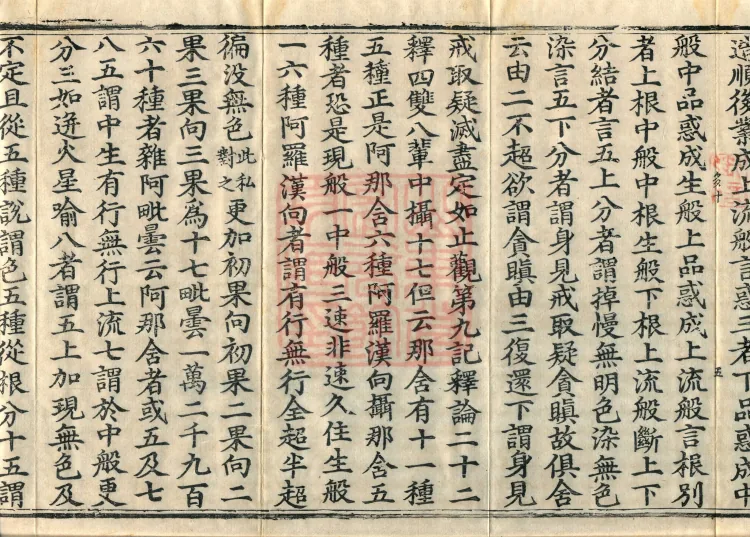 造順後業成上流般言惑三者下品惑成中
般中品惑成生般上品惑成上流般言根別
者上根中般中根生般下根上流般斷上下
分結者言五上分者謂掉慢無明色染無色
染言五下分者謂身見戒取疑貪瞋故俱舍
云由二不超欲謂貪瞋由三復還下謂身見
戒取疑滅盡定如止觀第九記釋論二十二
釋四雙八輩中攝十七但云那含有十一種
五種正是阿那含六種阿羅漢向攝那含五
種者恐是現般一中般三速非速久住生般
一六種阿羅漢向者謂有行無行全超半超
徧没無色此私對之更加初果向初果二果向二
果三果向三果為十七毗曇一萬二千九百
六十種者雜阿毗曇云阿那舍者或五及七
八五謂中生有行無行上流七謂於中般更
分三如迸火星喻八者謂五上加現無色及
不定且從五種說謂色五種從根分十五謂
五